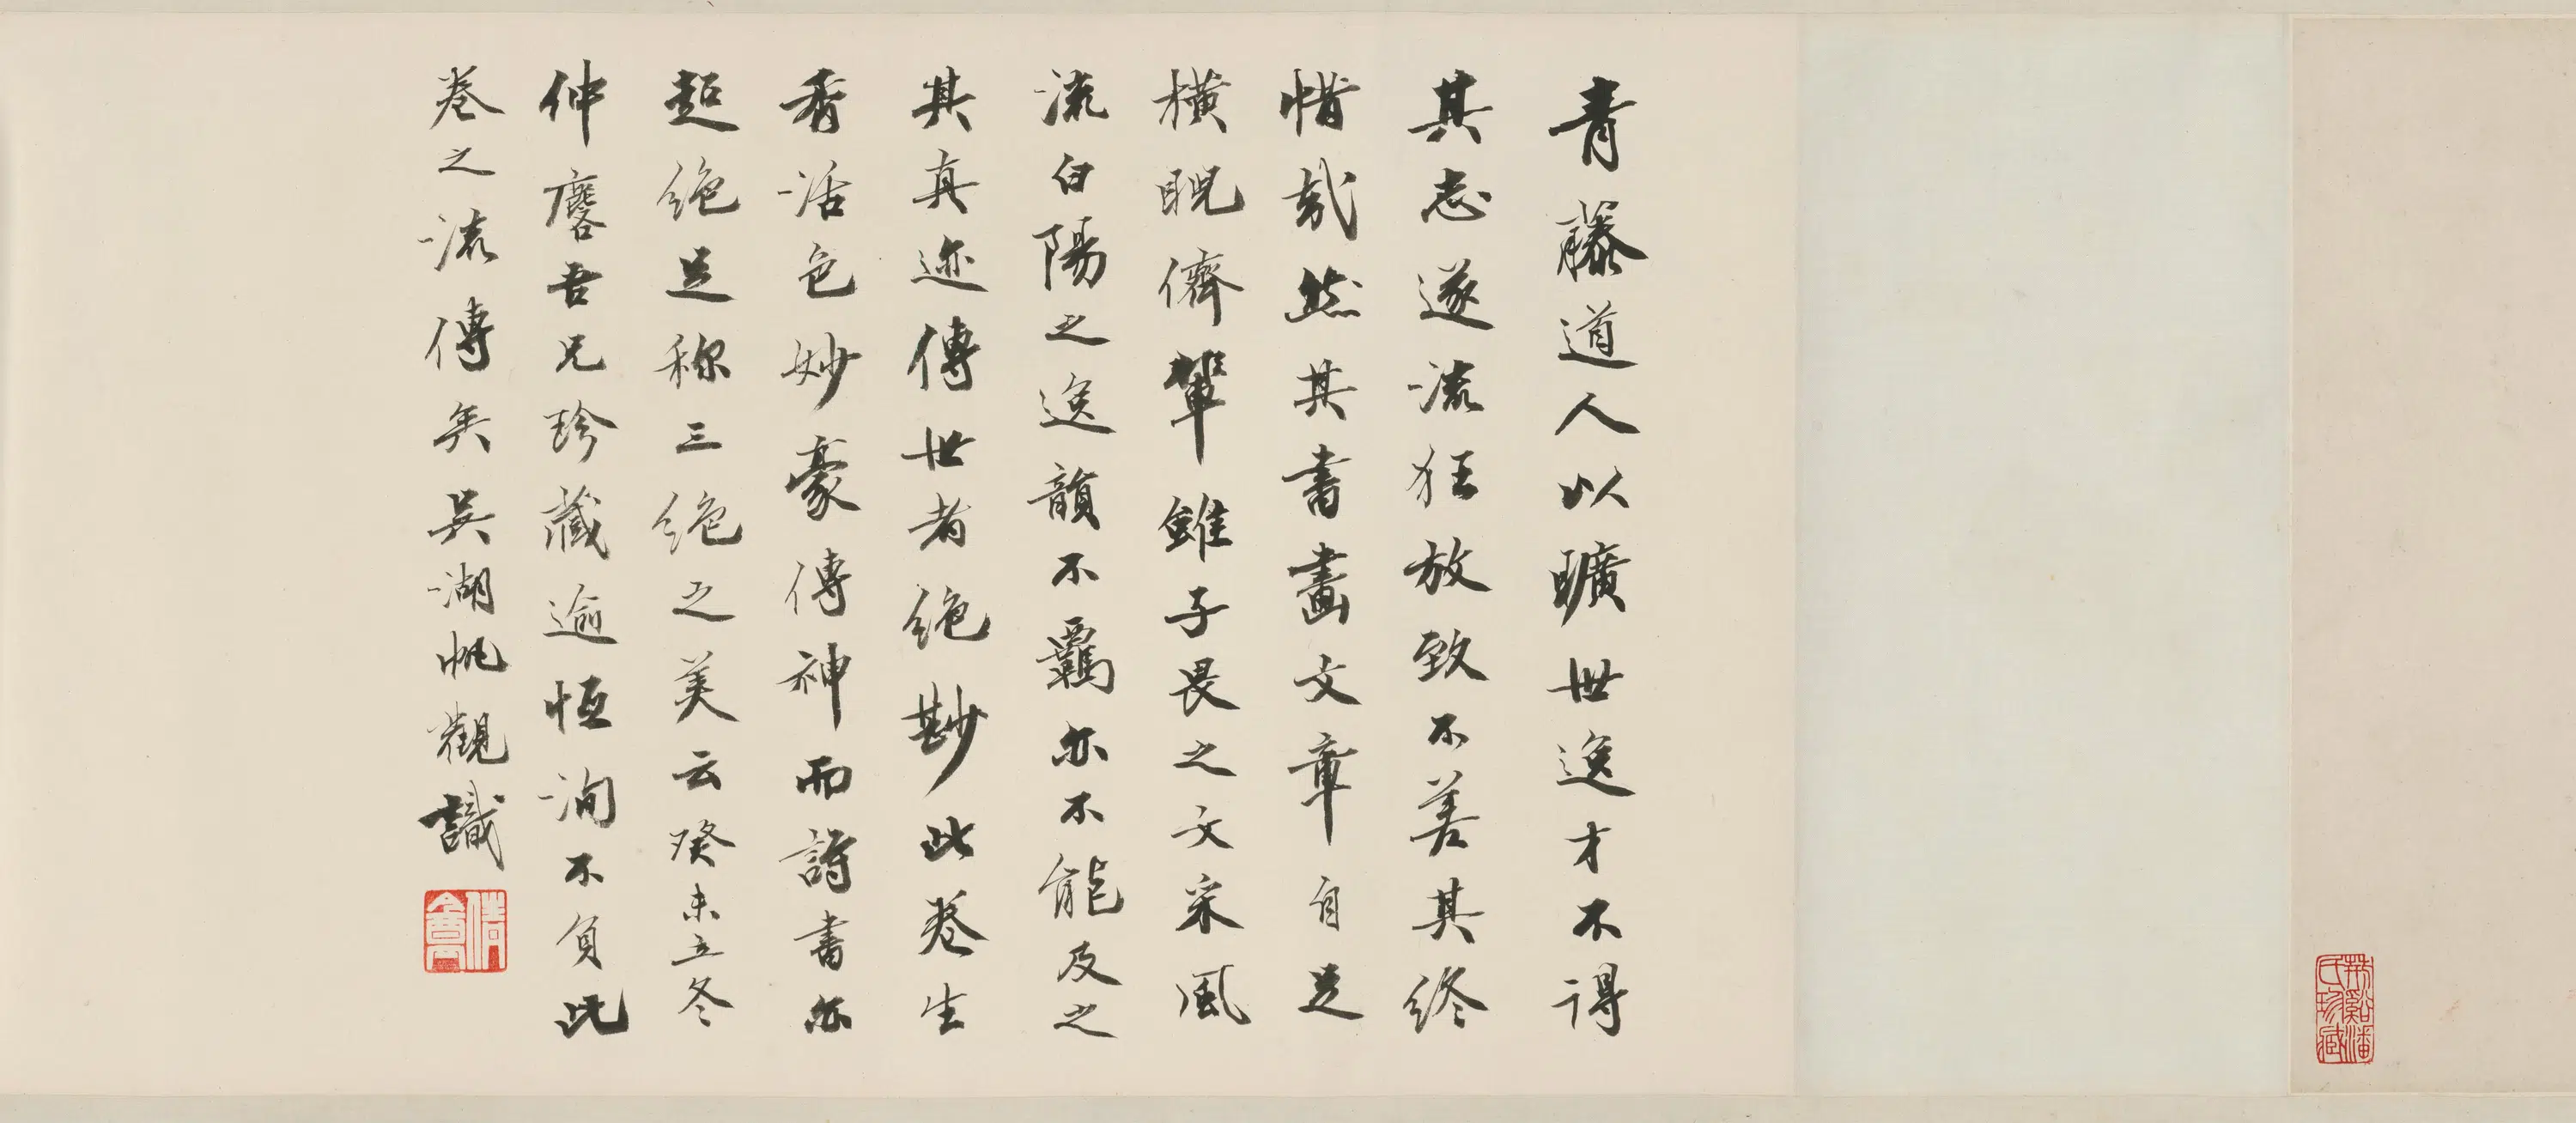 青藤道人以曠世逸才不得
其志遂流狂放致不善其終
惜哉然其書畫文章自足
橫睨儕輩雖子畏之文采風
流白陽之逸韻不羈亦不能及之
其真迹傳世者絕尠此卷生
香活色妙豪傳神而詩書亦
超絕足称三絕之美云癸未立冬
仲麐吾兄珍藏逾恒洵不負此
卷之流傳矣吳湖帆觀識
倩盦
荊谿潘
氏珍臧